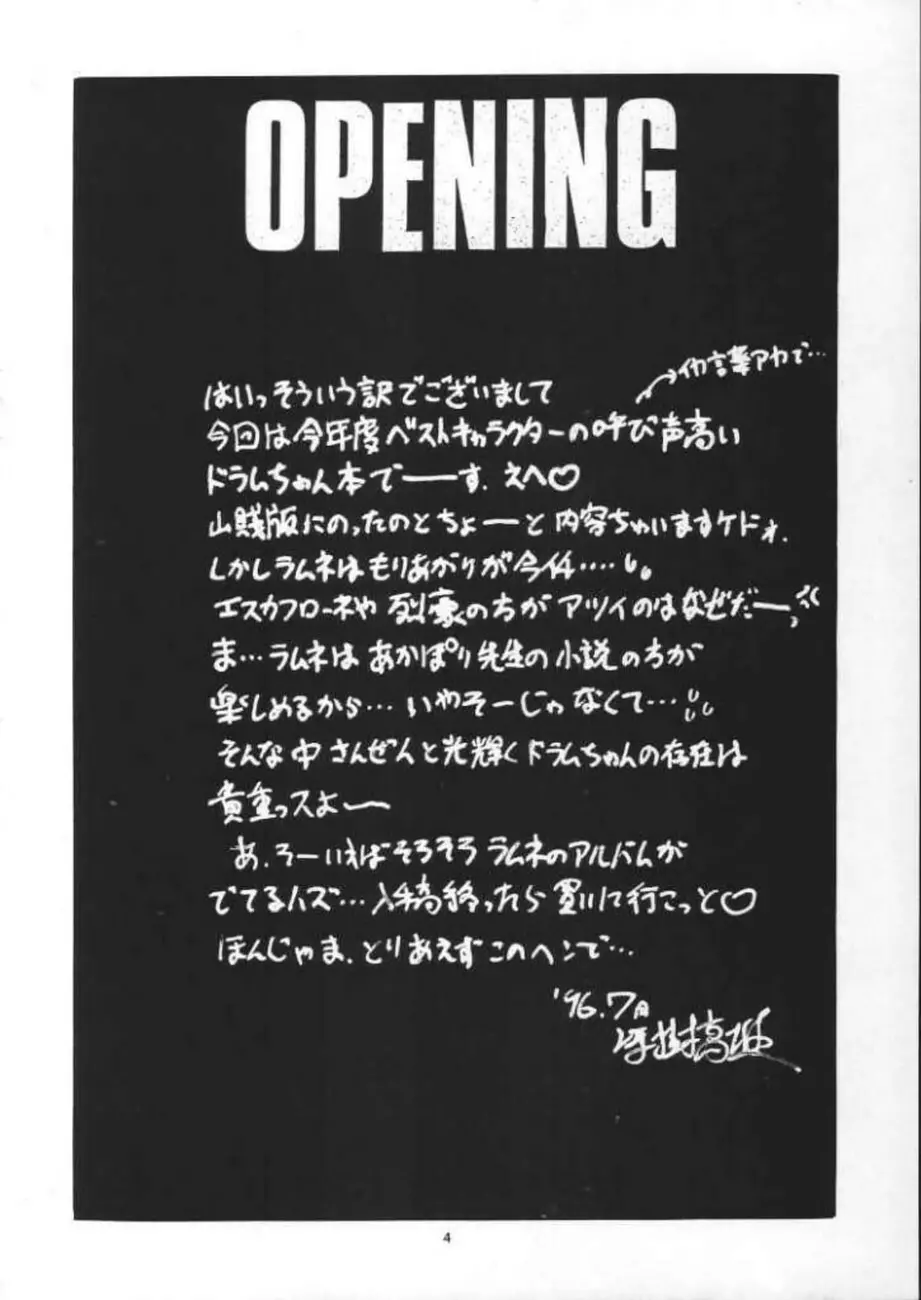 OPENING
→イカ言葉アカで…
はいっそういう訳でございまして
今回は今年度ベストキャラクターの呼び声高い
ドラムちゃん本でーーす. えへ♡
山賊版にのったのとちょーーと内容ちゃいますケドォ.
しかしラムネはもりあがりが今イ千….
エスカフローネや烈豪の方がアツイのはなぜだー
ま…ラムネはあかほり先生の小説の方が
楽しめるから…いやそーじゃなくて…
そんな中さんぜんと光輝くドラムちゃんの存在は
貴重っスよー
あ.そーいえばそろそろラムネのアルバムが
でてるハズ…入稿終ったら買いに行こっと♡
ほんじゃま.とりあえずこのヘンで…
'96.7月
4